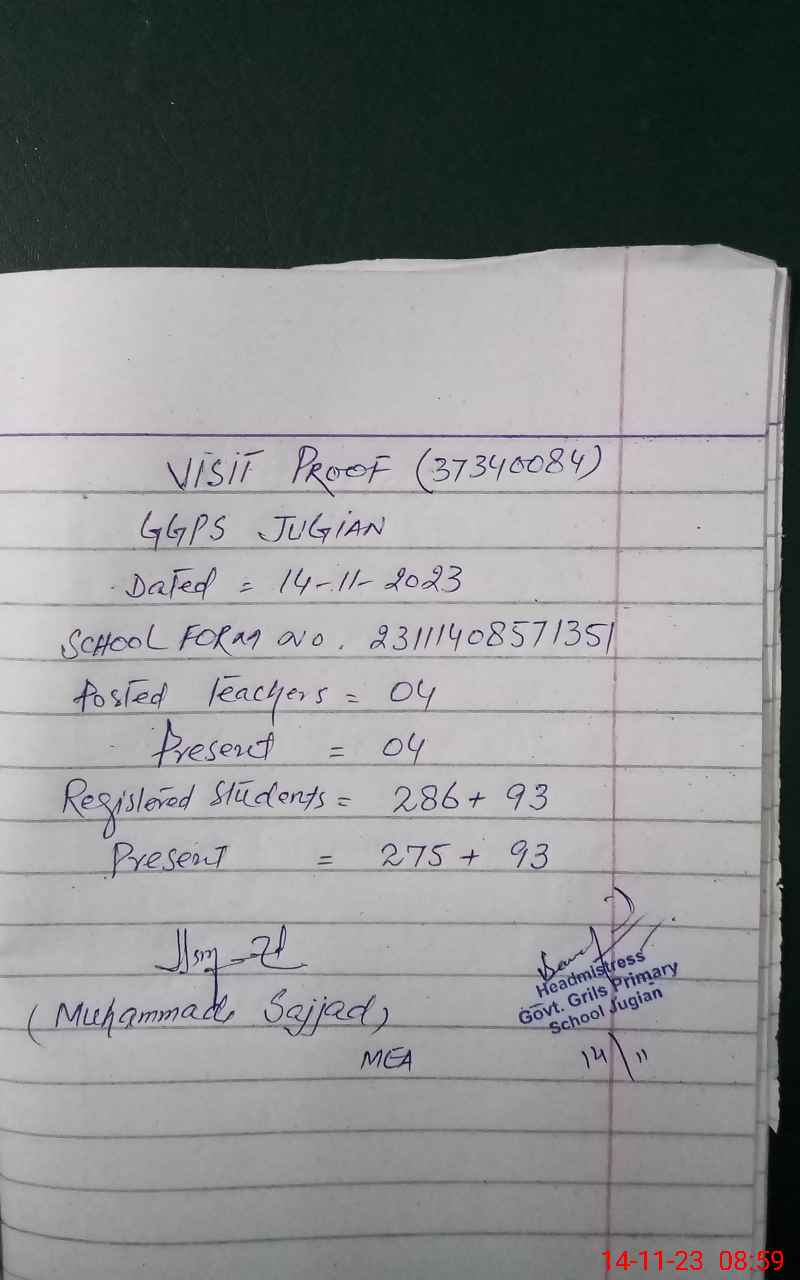 VISIT PROOF (37340084)
GGPS JUGIAN
Dated = 14-11-2023
SCHOOL FORM NO. 23111408571351
Posted Teachers = 04
Present = 04
Registered Students = 286 + 93
Present = 275 + 93
Headmistress
Govt. Grils Primary
School Jugian
(Muhammad Sajjad)
MEA
14/11
14-11-23 08:59